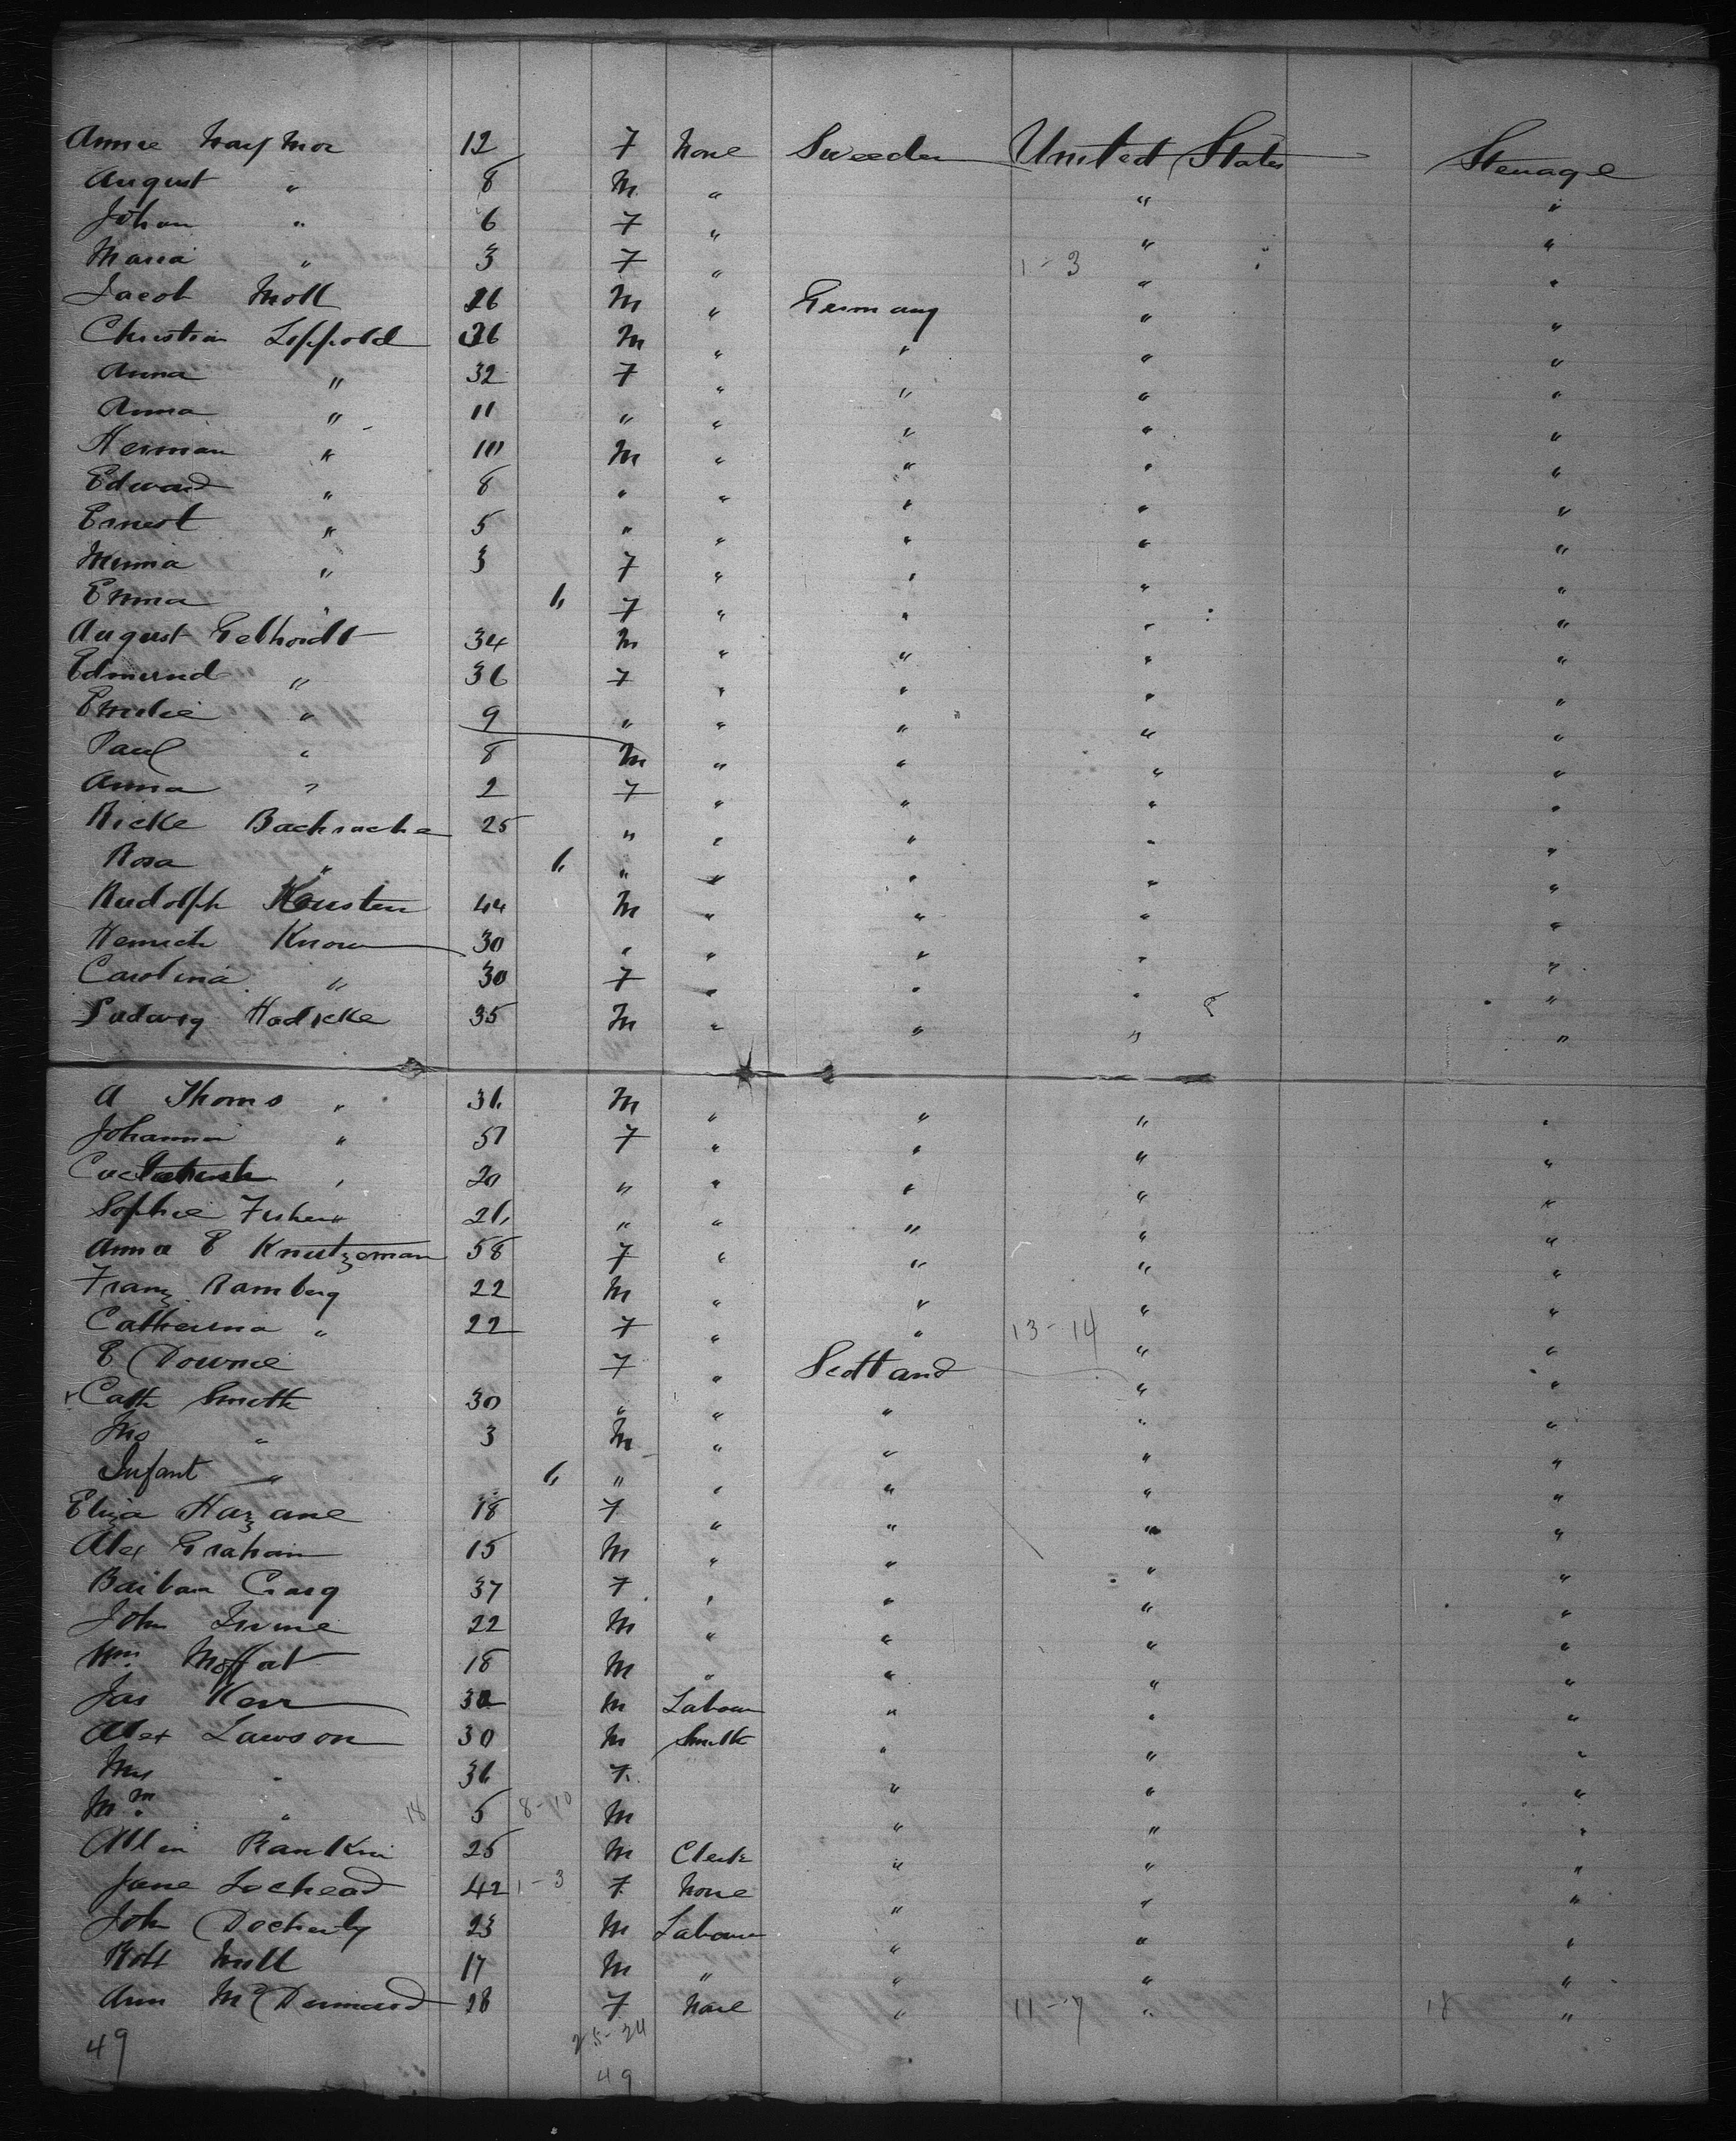 Annie 12 F None Sweeden United States Steuage
August " 8 M " " "
Johan " 6 F " " "
Maria " 3 F " 1-3 " "
Jacob Moll 26 M " Germany " "
Christian Leppold 36 M " " " "
Anna " 32 F " " " "
Anna " 11 " " " " "
Herman " 10 M " " " "
Edward " 8 " " " " "
Ernest " 5 " " " " "
Minna " 3 F " " " "
Emma " 6 F " " " "
August Gebhardt 34 M " " " "
Edmund " 36 F " " " "
Emilie " 9 " " " " "
Paul " 8 M " " " "
Anna " 2 F " " " "
Ricke Bachrache 25 " " " " "
Rosa " 6 " " " " "
Rudolph Kersten 44 M " " " "
Henrich Know 30 " " " " "
Carolina " 30 F " " " "
Ludwig Hadicke 35 M " " " "
A Thoms " 36 M " " " "
Johanna " 51 F " " " "
" 20 " " " " "
Sophie Fisher " 26 " " " " "
Anna E Knutzeman 58 F " " " "
Franz Ramberg 22 M " " " "
Catherina " 22 F " " 13-14 " "
E Downie F " Scotland " "
x Cath Smith 30 " " " " "
Jno " 3 M " " " "
Infant " 6 " " " " "
Eliza Hazane 18 F " " " "
Alex Graham 15 M " " " "
Barbara Craig 37 F " " " "
John Irvine 22 M " " " "
Wm Moffat 18 M " " " "
Jas Kerr 30 M Labour " " "
Alex Lawson 30 M Smith " " "
Mrs " 36 F " " "
Wm " 18 5 8-10 M " " "
Allen Rankin 25 M Clerk " " "
Jane Lochead 42 1-3 F None " " "
John Docherty 23 M Labour " " "
Robt Mill 17 M " " " "
Ann McDermand 28 F None " 11-7 " 18 "
49 25-24
49